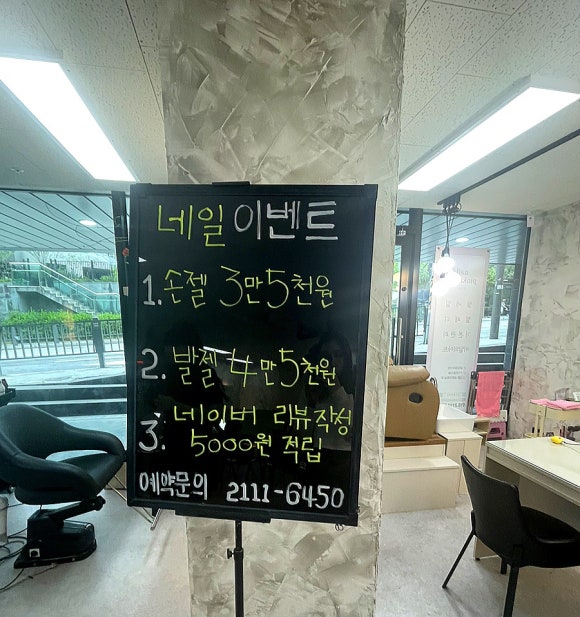 네일 이벤트
1. 손젤 3만5천원
2. 발젤 4만5천원
3. 네이버 리뷰작성
5000원 적립
예약문의 2111-6450